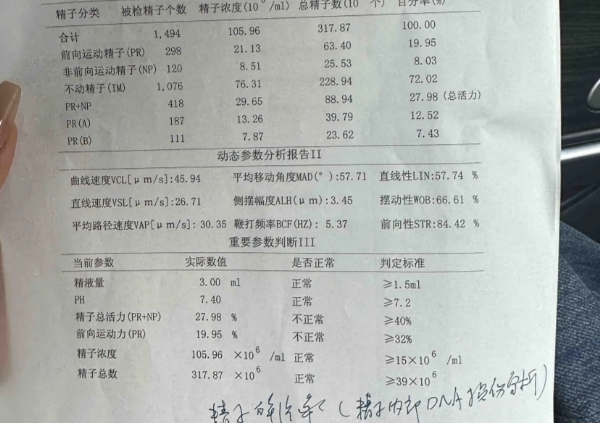 精子分类 被检精子个数 精子浓度(10⁶/ml) 总精子数(10 个) 百分率(%)
合计 1,494 105.96 317.87 100.00
前向运动精子(PR) 298 21.13 63.40 19.95
非前向运动精子(NP) 120 8.51 25.53 8.03
不动精子(IM) 1,076 76.31 228.94 72.02
PR+NP 418 29.65 88.94 27.98 (总活力)
PR(A) 187 13.26 39.79 12.52
PR(B) 111 7.87 23.62 7.43
动态参数分析报告II
曲线速度VCL[μm/s]:45.94 平均移动角度MAD(°):57.71 直线性LIN:57.74 %
直线速度VSL[μm/s]:26.71 侧摆幅度ALH(μm):3.45 摆动性WOB:66.61 %
平均路径速度VAP[μm/s]: 30.35 鞭打频率BCF(HZ): 5.37 前向性STR:84.42 %
重要参数判断III
当前参数 实际数值 是否正常 判定标准
精液量 3.00 ml 正常 ≥1.5ml
PH 7.40 正常 ≥7.2
精子总活力(PR+NP) 27.98 % 不正常 ≥40%
前向运动力(PR) 19.95 % 不正常 ≥32%
精子浓度 105.96 ×10⁶ /ml 正常 ≥15×10⁶ /ml
精子总数 317.87 ×10⁶ 正常 ≥39×10⁶
精子 (精子内部DNA损伤分析)